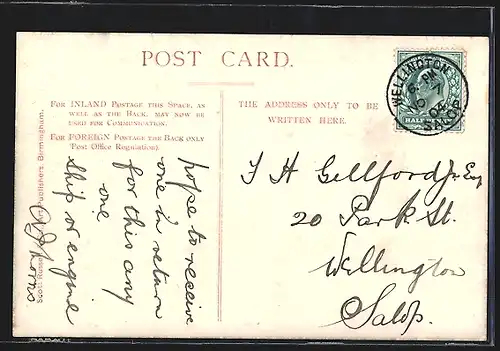 POST CARD.
FOR INLAND POSTAGE THIS SPACE, AS
WELL AS THE BACK, MAY NOW BE
USED FOR COMMUNICATION.
FOR FOREIGN POSTAGE THE BACK ONLY
(Post Office Regulation).
THE ADDRESS ONLY TO BE
WRITTEN HERE.
WELLINGTON
6. PM
NO 7
04
SALOP
HALF
hope to receive
one in return
for this any
one
ship or engine
J H Gellford Jr Esq
20 Park St.
Wellington
Salop.
Publishers, Birmingham.